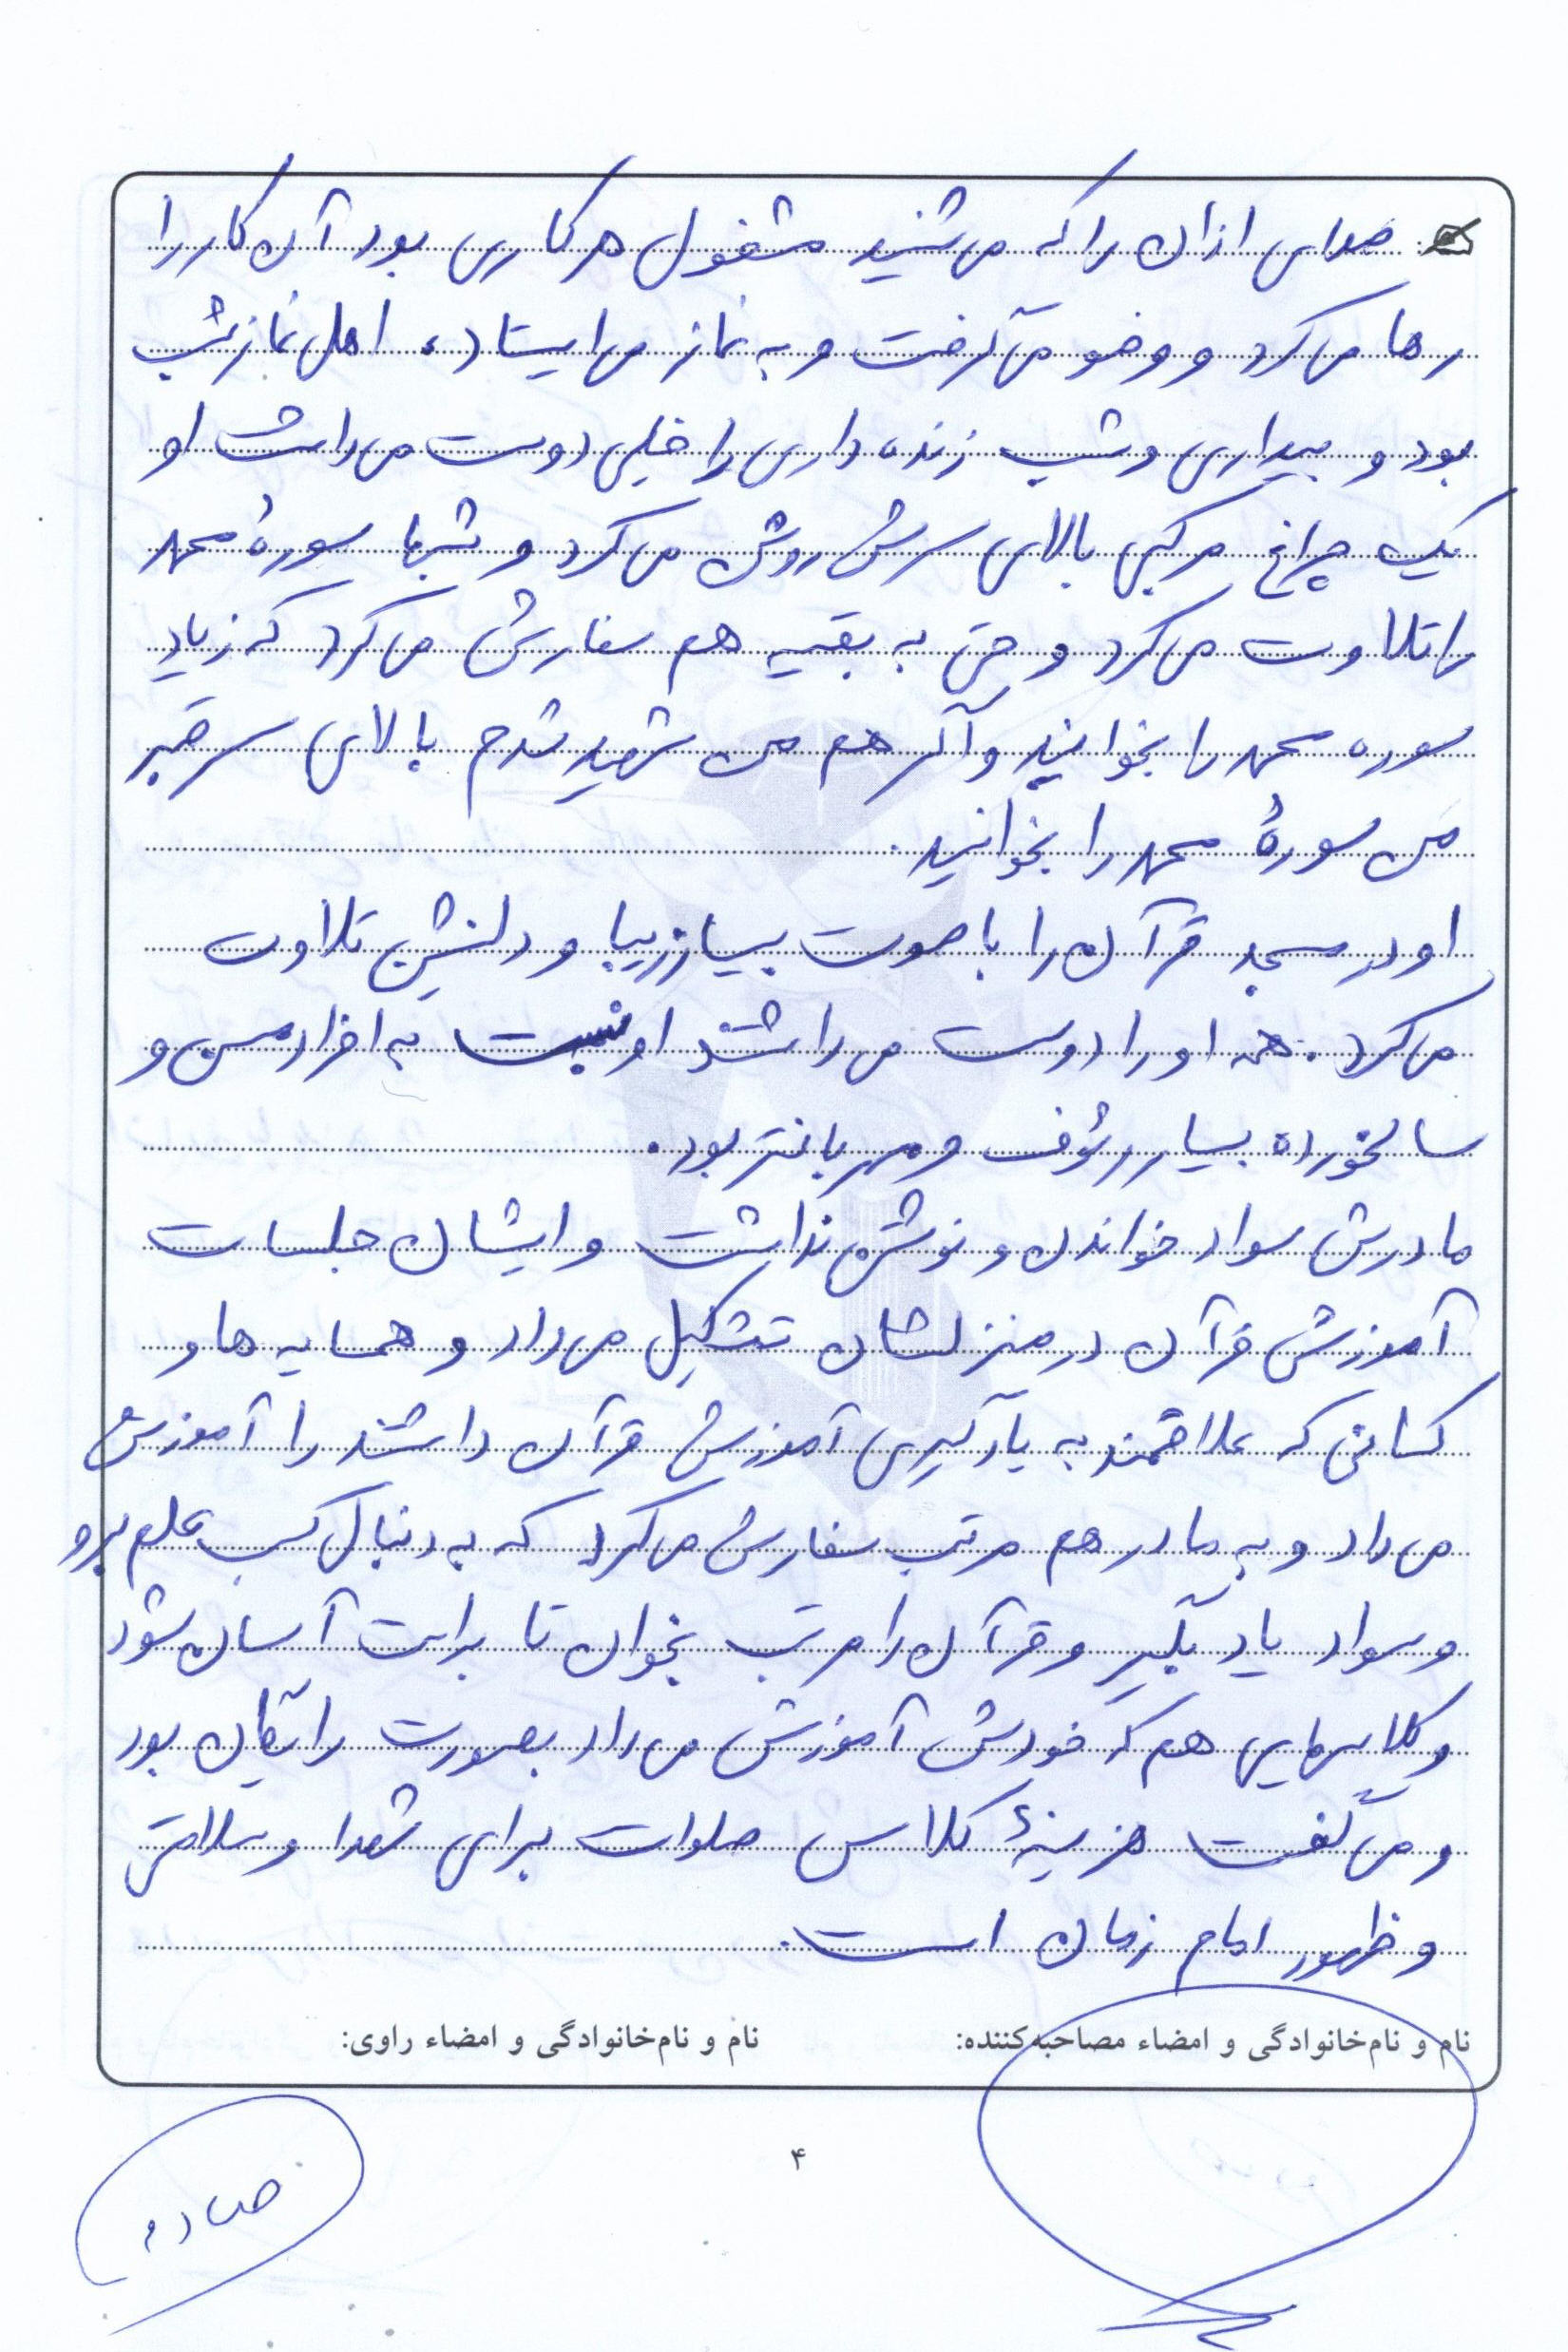 صدای اذان را که می شنید مشغول هر کاری بود آن کار را
رها می کرد و وضو می گرفت و به نماز می ایستاد، اهل نماز شب
بود و بیداری و شب زنده داری را خیلی دوست می داشت او
یک چراغ مرکبی بالای سرش روشن می کرد و شبها سورهٔ محمد
را تلاوت می کرد و حتی به بقیه هم سفارش می کرد که زیاد
سوره محمد را بخوانید و اگر هم من شهید شدم بالای سر قبر
من سورهٔ محمد را بخوانید.
او در مسجد قرآن را با صوت بسیار زیبا و دلنشین تلاوت
می کرد. همه او را دوست می داشتند او نسبت به افراد مسن و
سالخورده بسیار رئوف و مهربانتر بود.
مادرش سواد خواندن و نوشتن نداشت و ایشان جلسات
آموزش قرآن در منزلشان تشکیل می داد و همسایه ها و
کسانی که علاقمند به یادگیری آموزش قرآن داشتند را آموزش
می داد و به مادر هم مرتب سفارش می کرد که به دنبال کسب علم برو
و سواد یاد بگیر و قرآن را مرتب بخوان تا برایت آسان شود
و کلاسهایی هم که خودش آموزش می داد بصورت رایگان بود
و می گفت هزینهٔ کلاس صلوات برای شهدا و سلامتی
و ظهور امام زمان است.
نام و نام‌خانوادگی و امضاء مصاحبه‌کننده:
نام و نام‌خانوادگی و امضاء راوی:
۴